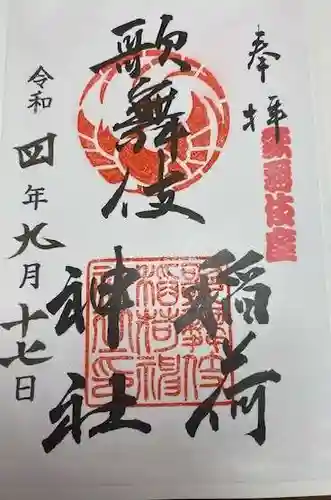 奉拝
歌舞伎座
歌舞伎
稲荷
神社
令和四年九月十七日